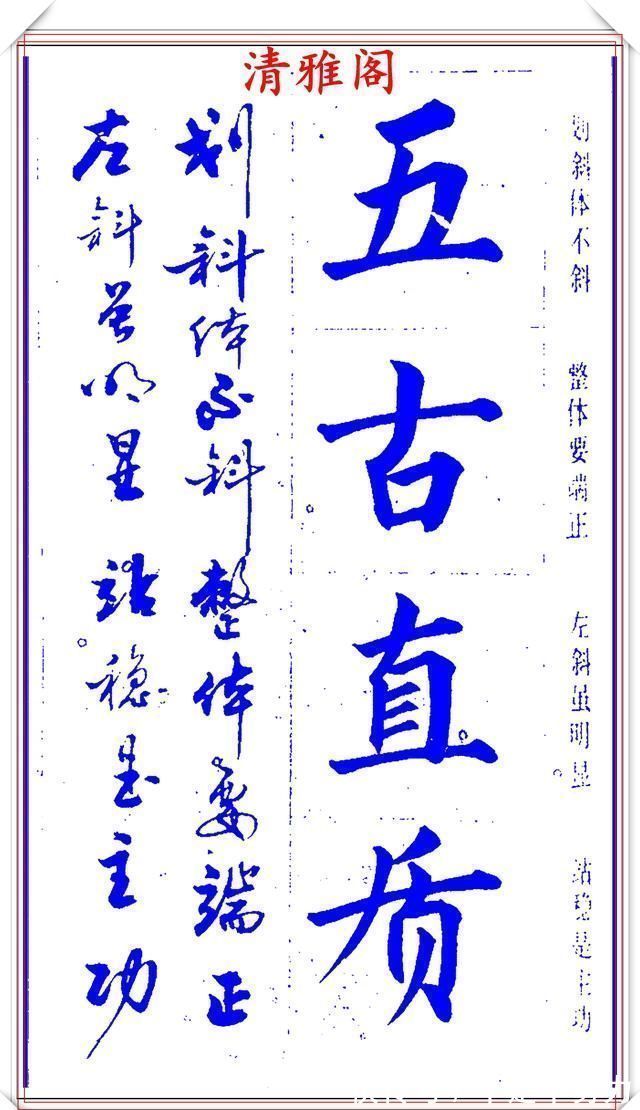 清雅阁
划斜体不斜
整体要端正
左斜虽明显
站稳是主功
五古直质
划斜体不斜整体要端正
左斜虽明显站稳是主功